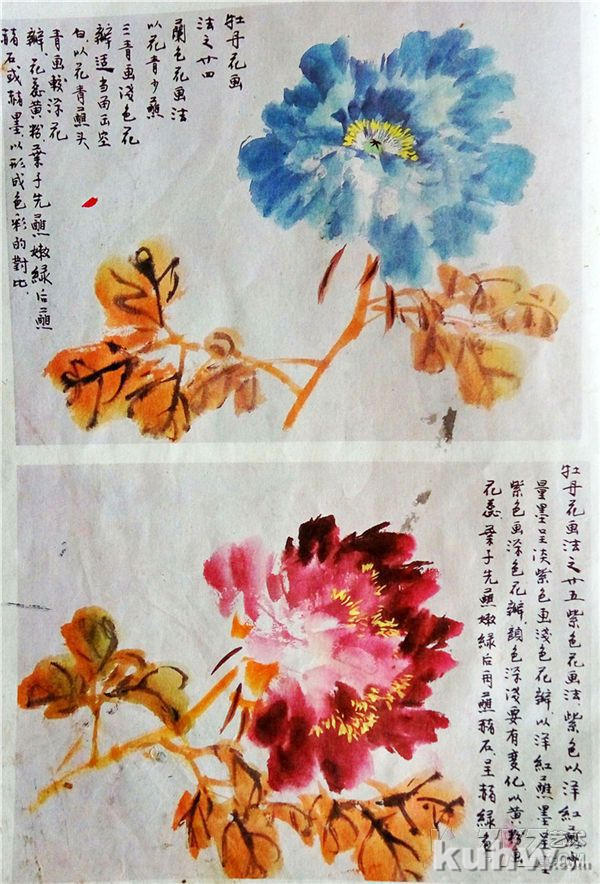 牡丹花画
法之廿四
蘭色花画法
以花青少蘸
三青画淺色花
瓣适当留出空
白,以花青蘸头
青画較深花
瓣,花蕊黄粉,葉子先蘸嫩緑后蘸
赭石或赭墨,以形成色彩的對比,
牡丹花画法之廿五紫色花画法,紫色以洋红蘸少
量墨呈淡紫色画淺色花瓣以洋红蘸墨呈
紫色画深色花瓣,顔色深淺要有变化,以黄粉
花蕊,葉子先蘸嫩緑后用蘸赭石,呈赭緑色